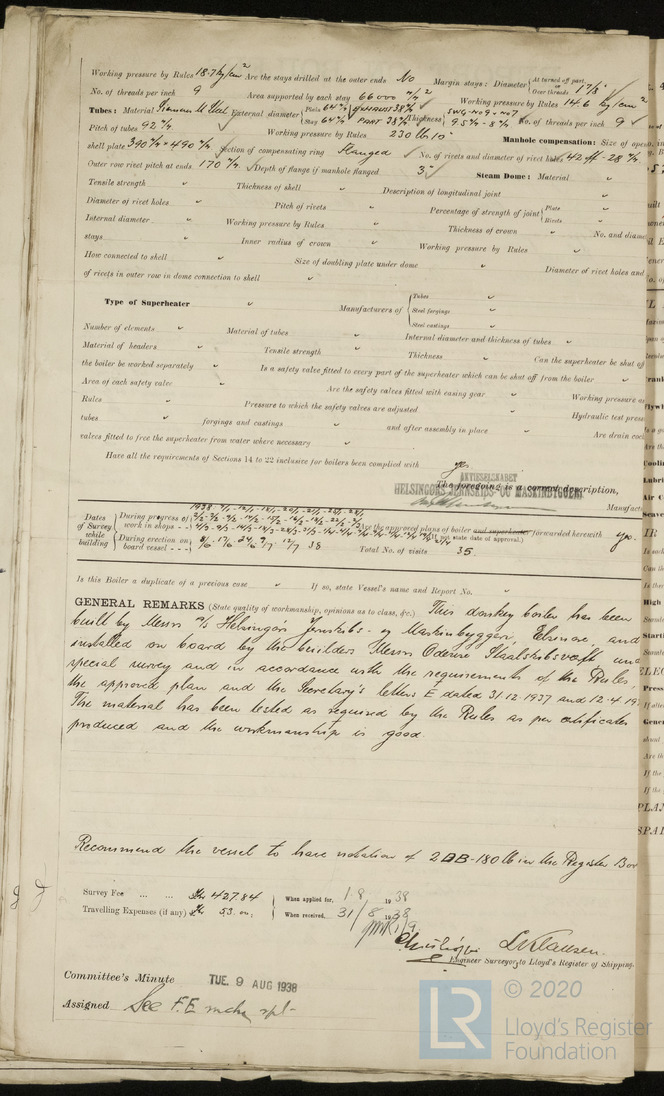 Working pressure by Rules 18.7 kg/cm² Are the stays drilled at the outer ends No Margin stays: Diameter { At turned off part, or Over threads 1 7/8"
No. of threads per inch 9 Area supported by each stay 66000 Working pressure by Rules 14.6 kg/cm²
Tubes: Material Siemens M Steel External diameter { Plain 64 Stay 64 Thickness No. of threads per inch 9
Pitch of tubes 92 Working pressure by Rules 230 lb Manhole compensation: Size of
shell plate 390 × 490 Section of compensating ring flanged No. of rivets and diameter of rivet holes 42 off - 28
Outer row rivet pitch at ends 170 Depth of flange if manhole flanged 3" Steam Dome: Material "
Tensile strength " Thickness of shell " Description of longitudinal joint "
Diameter of rivet holes " Pitch of rivets " Percentage of strength of joint { Plate " Rivets "
Internal diameter " Working pressure by Rules " Thickness of crown " No. and diam
stays " Inner radius of crown " Working pressure by Rules "
How connected to shell " Size of doubling plate under dome " Diameter of rivet holes and
of rivets in outer row in dome connection to shell "
Type of Superheater " Manufacturers of { Tubes " Steel forgings " Steel castings "
Number of elements " Material of tubes " Internal diameter and thickness of tubes "
Material of headers " Tensile strength " Thickness " Can the superheater be shut off
the boiler be worked separately " Is a safety valve fitted to every part of the superheater which can be shut off from the boiler "
Area of each safety valve " Are the safety valves fitted with easing gear " Working pressure as
Rules " Pressure to which the safety valves are adjusted " Hydraulic test press
tubes " forgings and castings " and after assembly in place " Are drain cock
valves fitted to free the superheater from water where necessary "
Have all the requirements of Sections 14 to 22 inclusive for boilers been complied with yes
The foregoing is a correct description,
AKTIESELSKABET
HELSINGØRS JERNSKIBS- OG MASKINBYGGERI
Manufact
Dates of Survey while building { During progress of work in shops - - 1938
Are the approved plans of boiler and superheater forwarded herewith yes
(If not state date of approval.)
During erection on board vessel - - - 38 Total No. of visits 35
Is this Boiler a duplicate of a previous case " If so, state Vessel's name and Report No. "
GENERAL REMARKS (State quality of workmanship, opinions as to class, &c.) This donkey boiler has been
built by Messrs A/S Helsingørs Jernskibs- og Maskinbyggeri, Elsinore, and
installed on board by the builders Messrs Odense Staalskibsværft und
special survey and in accordance with the requirements of the Rules,
the approved plan and the Secretary's letters E dated 31.12.1937 and 12.4.19
The material has been tested as required by the Rules as per certificates
produced and the workmanship is good.
Recommend the vessel to have notation of 2DB-180 lb in the Register Boo
Survey Fee ... ... Kr 427.84 When applied for, 1 8 1938
Travelling Expenses (if any) Kr 53.00 When received, 31/8 1938
L. Klausen.
Engineer Surveyor to Lloyd's Register of Shipping.
Committee's Minute TUE. 9 AUG 1938
Assigned See F.E. mchy rpt-
LR © 2020
Lloyd's Register
Foundation